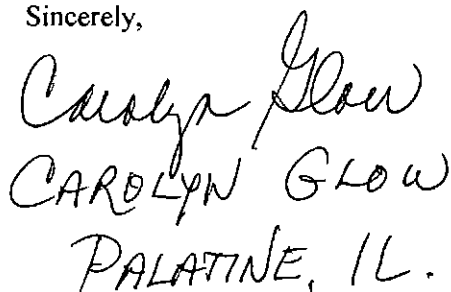 Sincerely,
Carolyn Glow
CAROLYN GLOW
PALATINE, IL.